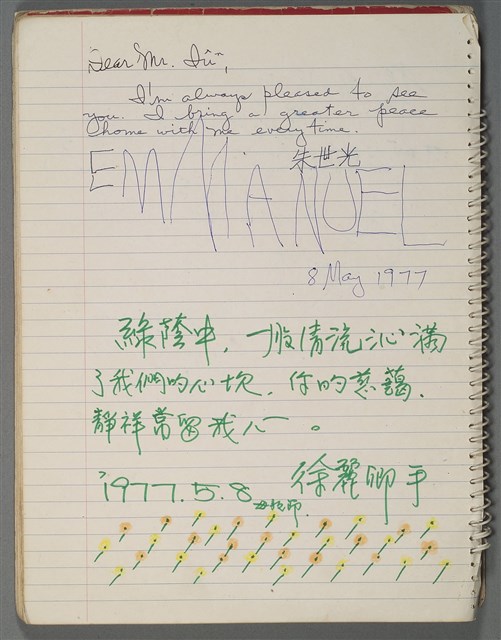 Dear Mr. Iû",
I'm always pleased to see
you. I bring a greater peace
home with me everytime.
朱世光
EMMANUEL
8 May 1977
綠蔭中，一股清流沁滿
了我們的心坎，你的慈藹、
靜祥常留我心。
1977.5.8 徐麗卿手
母親節